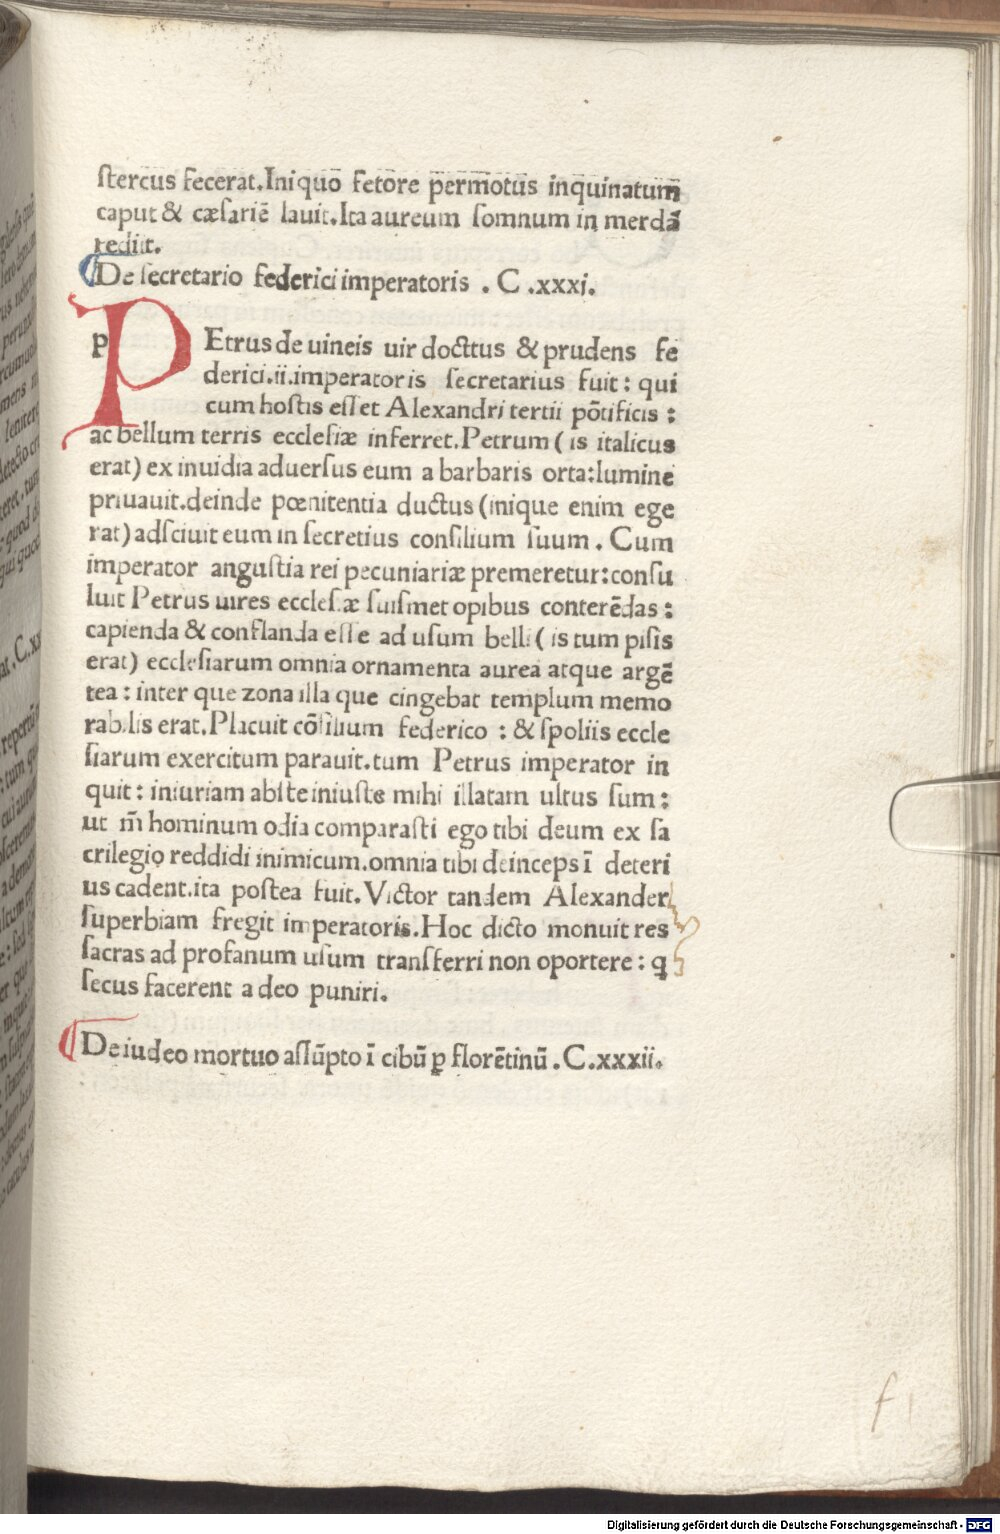 stercus fecerat. Iniquo fetore permotus inquinatum
caput & cæsariē lauit. Ita aureum somnum in merdā
rediit.
De secretario federici imperatoris . C .xxxi.
PEtrus de uineis uir docttus & prudens fe
derici .ii. imperatoris secretarius fuit: qui
cum hostis esset Alexandri tertii pōtificis :
ac bellum terris ecclesiæ inferret. Petrum ( is italicus
erat) ex inuidia aduersus eum a barbaris orta: lumine
priuauit. deinde pœnitentia ductus (inique enim ege
rat) adsciuit eum in secretius consilium suum . Cum
imperator angustia rei pecuniariæ premeretur: consu
luit Petrus uires ecclesiæ suismet opibus conterēdas :
capienda & conflanda esse ad usum belli ( is tum pisis
erat) ecclesiarum omnia ornamenta aurea atque argē
tea : inter que zona illa que cingebat templum memo
rabilis erat. Placuit cōsilium federico : & spoliis eccle
siarum exercitum parauit. tum Petrus imperator in
quit : iniuriam abs te iniuste mihi illatam ultus sum :
ut m̄ hominum odia comparasti ego tibi deum ex sa
crilegio reddidi inimicum. omnia tibi deinceps ī deteri
us cadent. ita postea fuit. Victor tandem Alexander
superbiam fregit imperatoris. Hoc dicto monuit res
sacras ad profanum usum transferri non oportere : q
secus facerent a deo puniri.
De iudeo mortuo assūpto ī cibū ꝑ florētinū . C. xxxii.
f 1
Digitalisierung gefördert durch die Deutsche Forschungsgemeinschaft - DFG